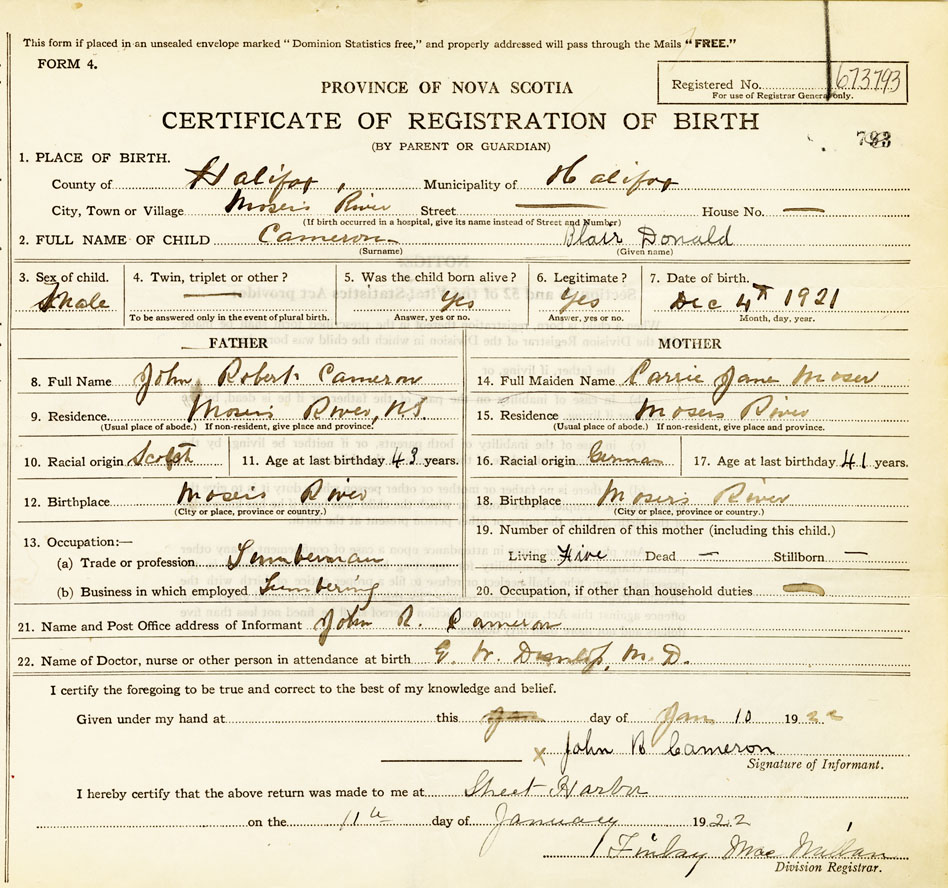 This form if placed in an unsealed envelope marked “Dominion Statistics free,” and properly addressed will pass through the Mails “FREE.”
FORM 4.
Registered No. 673793
For use of Registrar General only.
PROVINCE OF NOVA SCOTIA
CERTIFICATE OF REGISTRATION OF BIRTH
(BY PARENT OR GUARDIAN)
793
1. PLACE OF BIRTH.
County of Halifax, Municipality of Halifax
City, Town or Village Mosers River Street — House No. —
(If birth occurred in a hospital, give its name instead of Street and Number)
2. FULL NAME OF CHILD Cameron Blair Donald
(Surname) (Given name)
3. Sex of child. 4. Twin, triplet or other? 5. Was the child born alive? 6. Legitimate? 7. Date of birth.
Male — Yes Yes Dec 4th 1921
To be answered only in the event of plural birth. Answer, yes or no. Answer, yes or no. Month, day, year.
FATHER MOTHER
8. Full Name John Robert Cameron 14. Full Maiden Name Carrie Jane Moser
9. Residence Mosers River, N.S. 15. Residence Mosers River
(Usual place of abode.) If non-resident, give place and province. (Usual place of abode.) If non-resident, give place and province.
10. Racial origin Scotch 11. Age at last birthday 43 years. 16. Racial origin German 17. Age at last birthday 41 years.
12. Birthplace Mosers River 18. Birthplace Mosers River
(City or place, province or country.) (City or place, province or country.)
13. Occupation:— 19. Number of children of this mother (including this child.)
(a) Trade or profession Lumberman Living Five Dead — Stillborn —
(b) Business in which employed Lumbering 20. Occupation, if other than household duties —
21. Name and Post Office address of Informant John R. Cameron
22. Name of Doctor, nurse or other person in attendance at birth G. W. Dunlop, M.D.
I certify the foregoing to be true and correct to the best of my knowledge and belief.
Given under my hand at this day of Jan 10 1922
x John R Cameron
Signature of Informant.
I hereby certify that the above return was made to me at Sheet Harbor
on the 11th day of January 1922
Finlay MacMillan
Division Registrar.